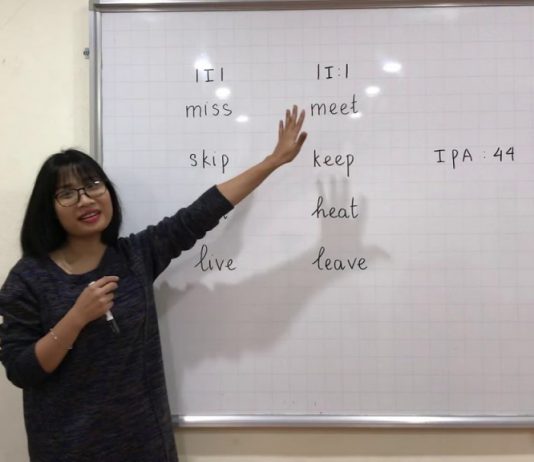 /I/ /I:/
miss meet
skip keep IPA : 44
heat
live leave